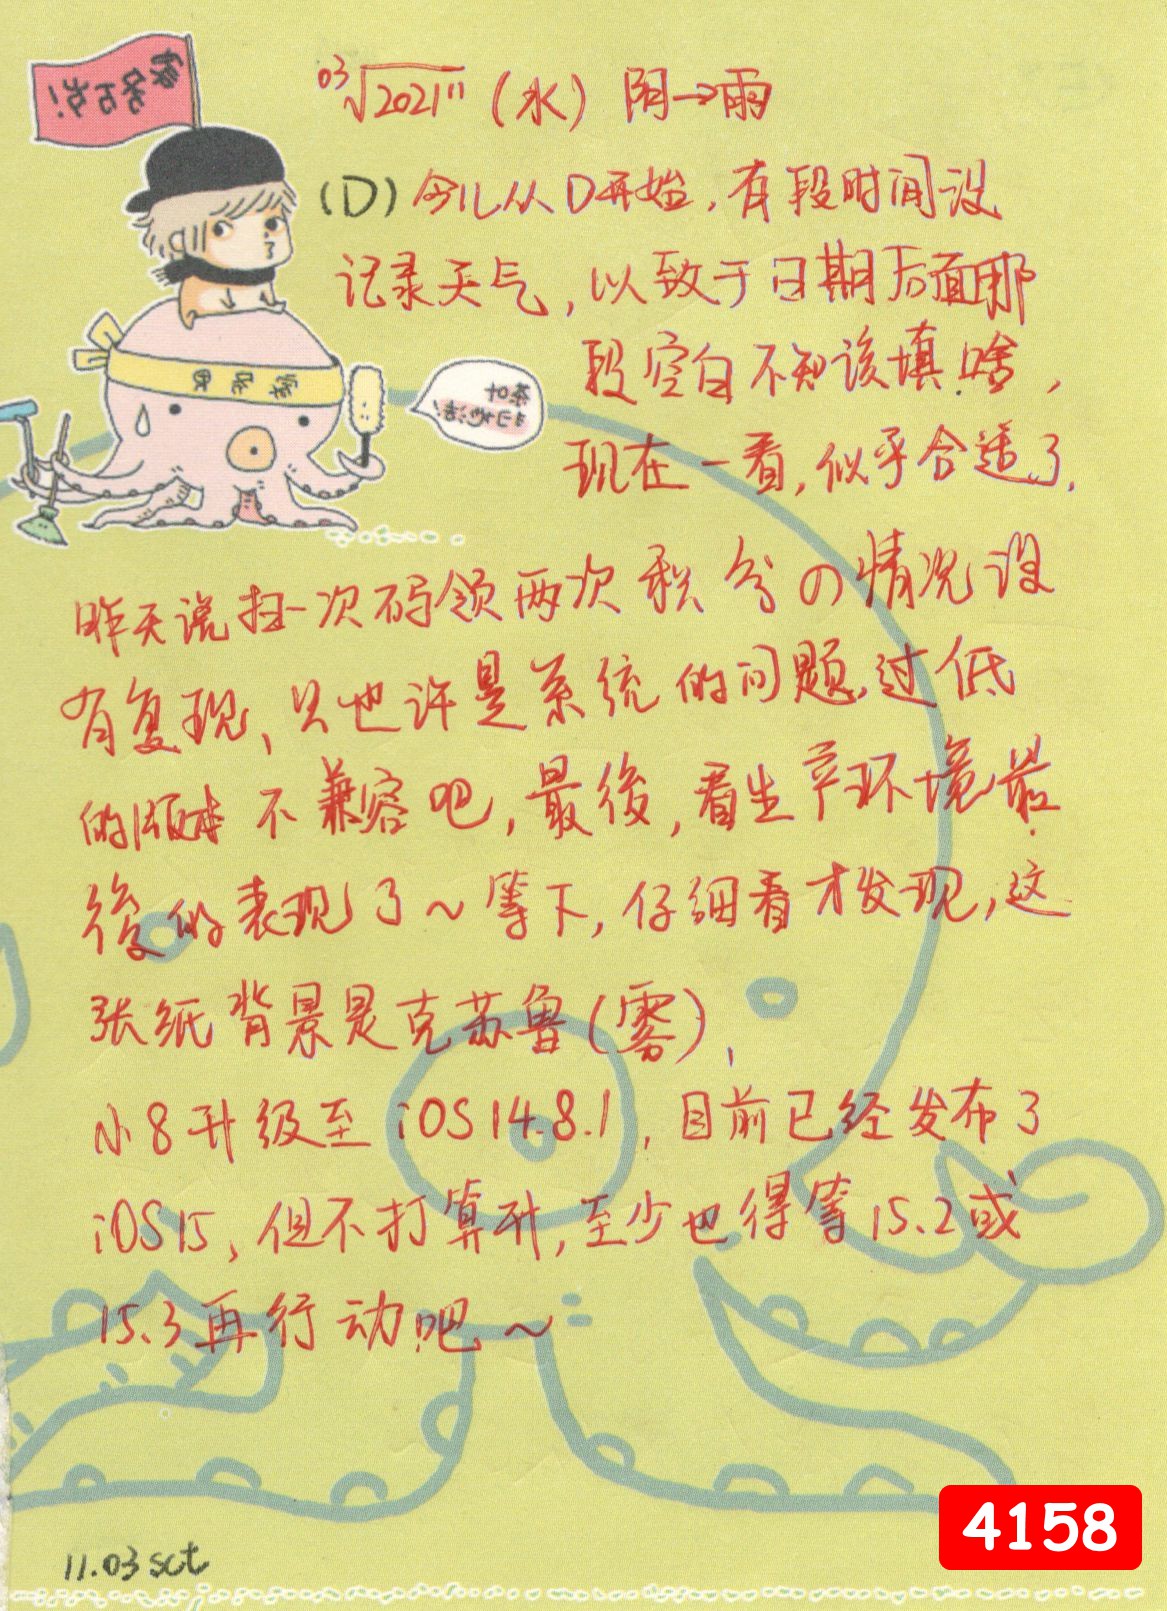 家务万岁!
03√2021'' (水) 阴→雨
(D) 今儿从D开始,有段时间没
记录天气,以致于日期后面那
段空白不知该填啥,
现在一看,似乎合适了.
家居男
茶叶
昨天说扫一次码领两次积分の情况没
有复现,只也许是系统的问题,过低
的版本不兼容吧,最後,看生产环境最
後的表现了~等下,仔细看才发现,这
张纸背景是克苏鲁(雾).
小8升级至iOS14.8.1,目前已经发布了
iOS15,但不打算升,至少也得等15.2或
15.3再行动吧~
11.03 sct
4158